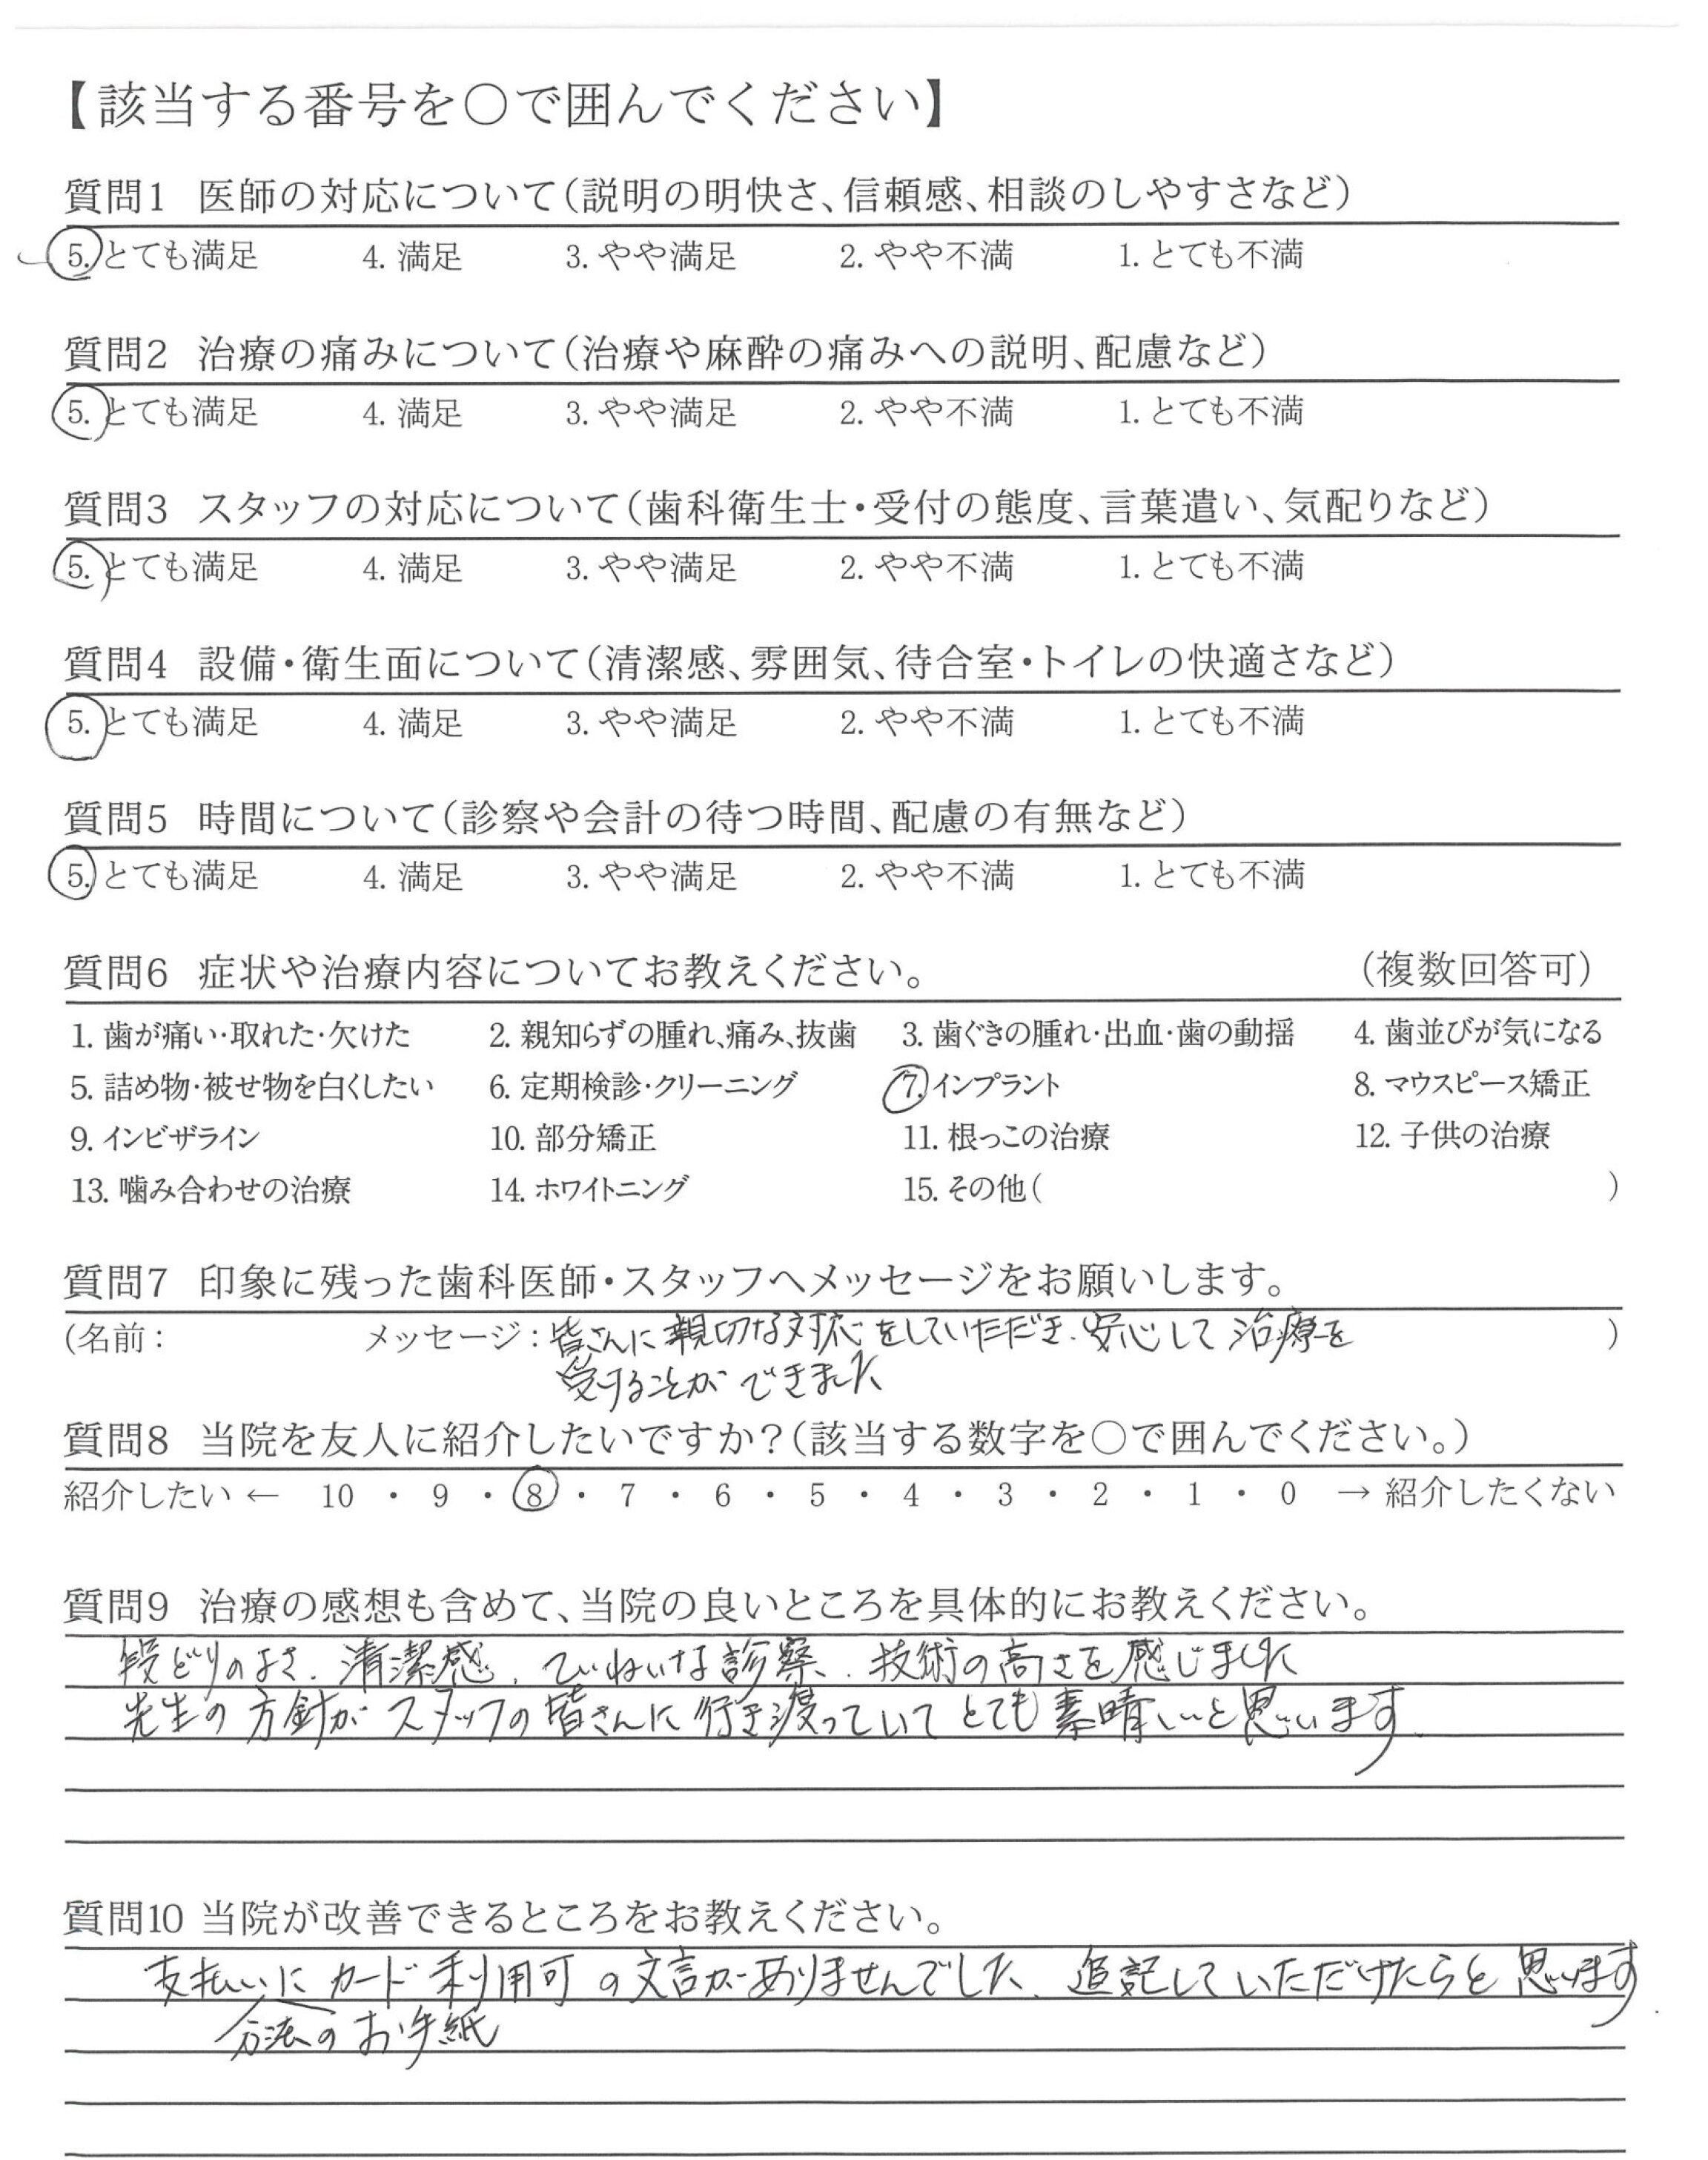 【該当する番号を〇で囲んでください】
質問1 医師の対応について（説明の明快さ、信頼感、相談のしやすさなど）
5. とても満足 4. 満足 3. やや満足 2. やや不満 1. とても不満
質問2 治療の痛みについて（治療や麻酔の痛みへの説明、配慮など）
5. とても満足 4. 満足 3. やや満足 2. やや不満 1. とても不満
質問3 スタッフの対応について（歯科衛生士・受付の態度、言葉遣い、気配りなど）
5. とても満足 4. 満足 3. やや満足 2. やや不満 1. とても不満
質問4 設備・衛生面について（清潔感、雰囲気、待合室・トイレの快適さなど）
5. とても満足 4. 満足 3. やや満足 2. やや不満 1. とても不満
質問5 時間について（診察や会計の待つ時間、配慮の有無など）
5. とても満足 4. 満足 3. やや満足 2. やや不満 1. とても不満
質問6 症状や治療内容についてお教えください。 （複数回答可）
1. 歯が痛い・取れた・欠けた 2. 親知らずの腫れ、痛み、抜歯 3. 歯ぐきの腫れ・出血・歯の動揺 4. 歯並びが気になる
5. 詰め物・被せ物を白くしたい 6. 定期検診・クリーニング 7. インプラント 8. マウスピース矯正
9. インビザライン 10. 部分矯正 11. 根っこの治療 12. 子供の治療
13. 噛み合わせの治療 14. ホワイトニング 15. その他（ ）
質問7 印象に残った歯科医師・スタッフへメッセージをお願いします。
（名前： メッセージ：皆さんに親切な対応をしていただき、安心して治療を ）
受けることができました
質問8 当院を友人に紹介したいですか？（該当する数字を〇で囲んでください。）
紹介したい ← 10 ・ 9 ・ 8 ・ 7 ・ 6 ・ 5 ・ 4 ・ 3 ・ 2 ・ 1 ・ 0 → 紹介したくない
質問9 治療の感想も含めて、当院の良いところを具体的にお教えください。
段どりのよさ、清潔感、ていねいな診察、技術の高さを感じました
先生の方針がスタッフの皆さんに行き渡っていてとても素晴しいと思います。
質問10 当院が改善できるところをお教えください。
支払いにカード利用可の文言がありませんでした、追記していただけたらと思います
方法のお手紙